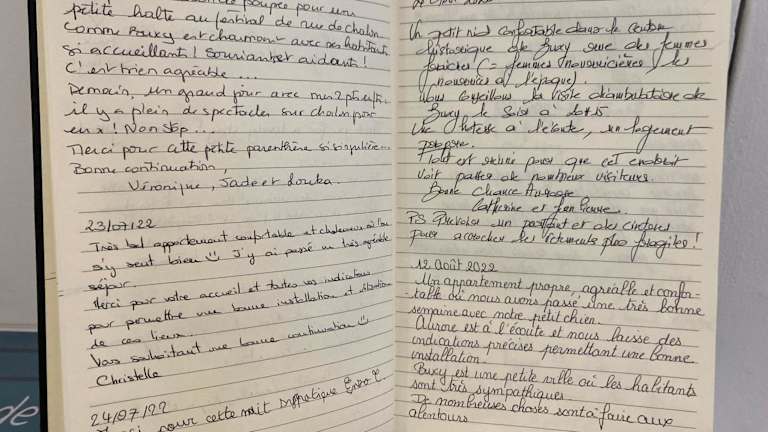 petite halte au festival de rue de chalon
Comme Buxy est charmant avec ses habitants
si accueillants! Souriants et aidants!
C'est très agréable ...
Demain, un grand jour avec mes 2 ptits
il y a plein de spectacles sur chalon pour
eux! Non stop ...
Merci pour cette petite parenthèse si singulière...
Bonne continuation,
Véronique, Jade et Louka.
23/07/22
Très bel appartement confortable et chaleureux où l'on
s'y sent bien J'y ai passé un très agréable
séjour.
Merci pour votre accueil et toutes vos indications
pour permettre une bonne installation et
de ces lieux.
Vous souhaitant une bonne continuation
Christelle
24/07/22
pour cette nuit
Un petit nid confortable dans le centre
historique de Buxy rue des femmes
fraiches (= femmes nourricières, les
nourrices à l'époque).
Nous conseillons la visite déambulatoire de
Buxy le soir à 20h15
Une hôtesse à l'écoute, un logement
propre.
Tout est réuni pour que cet endroit
voit passer de nombreux visiteurs.
Bonne Chance Aurore
Catherine et Jean Pierre.
PS Prévoir un portant et des cintres
pour accrocher les vêtements plus fragiles!
12 Août 2022
Un appartement propre, agréable et confor-
table où nous avons passé une très bonne
semaine avec notre petit chien.
Aurore est à l'écoute et nous laisse des
indications précises permettant une bonne
installation.
Buxy est une petite ville où les habitants
sont très sympathiques
De nombreuses choses sont à faire aux
alentours